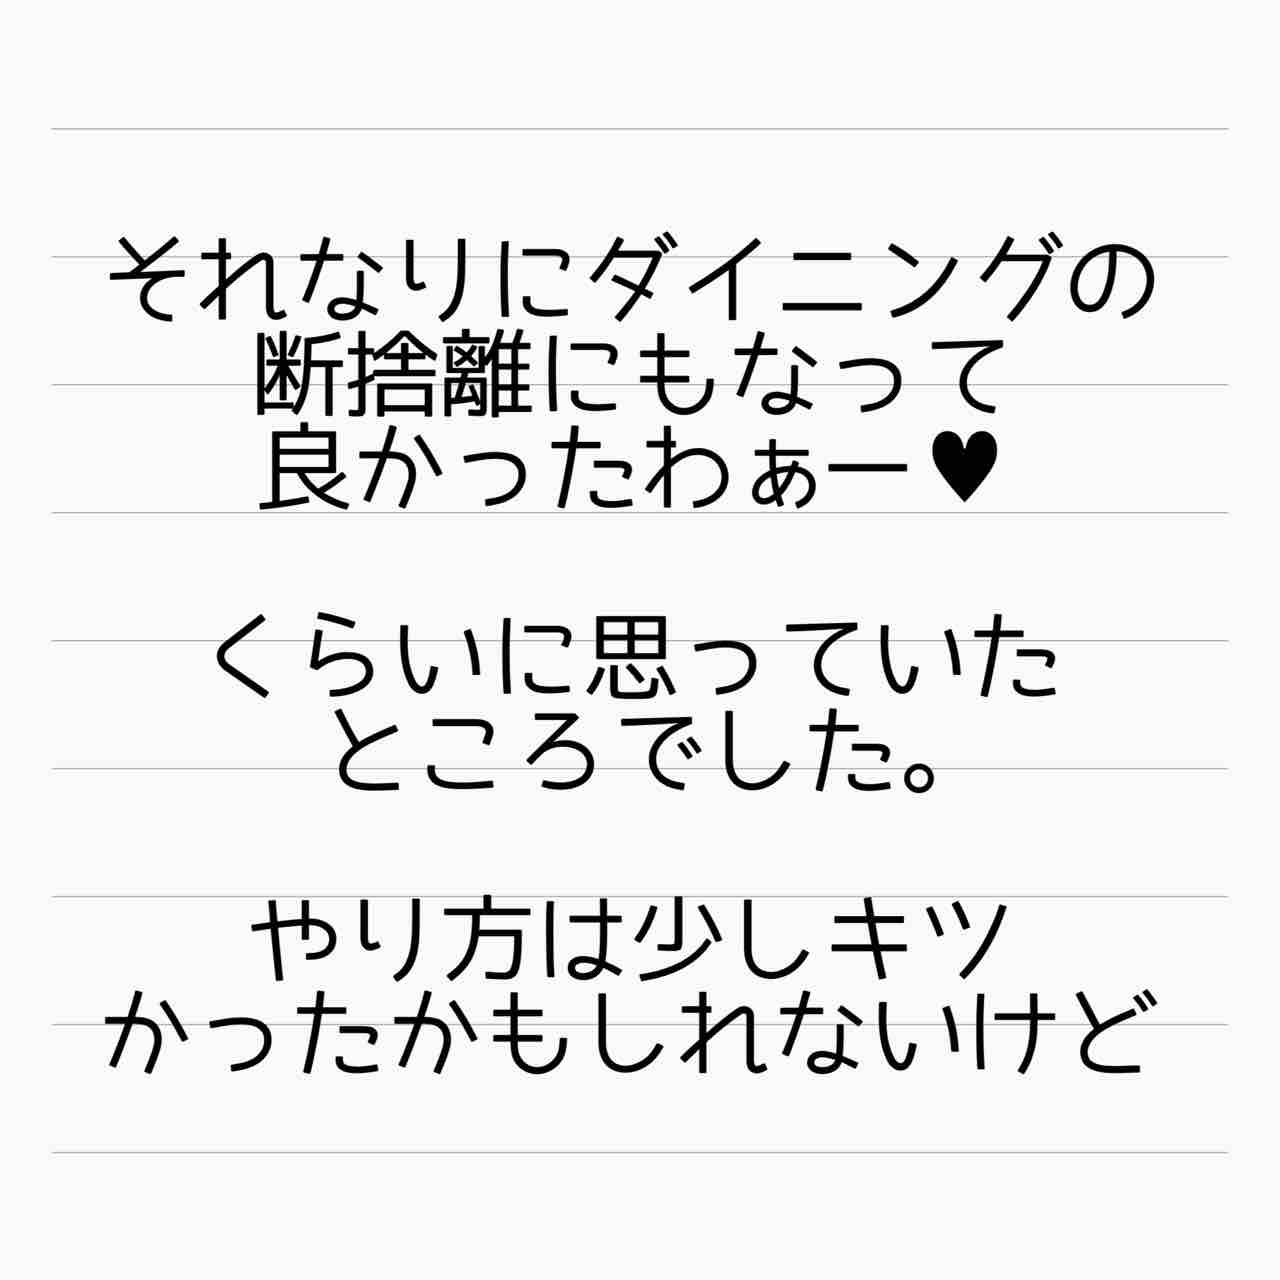 それなりにダイニングの
断捨離にもなって
良かったわぁー♥
くらいに思っていた
ところでした。
やり方は少しキツ
かったかもしれないけど